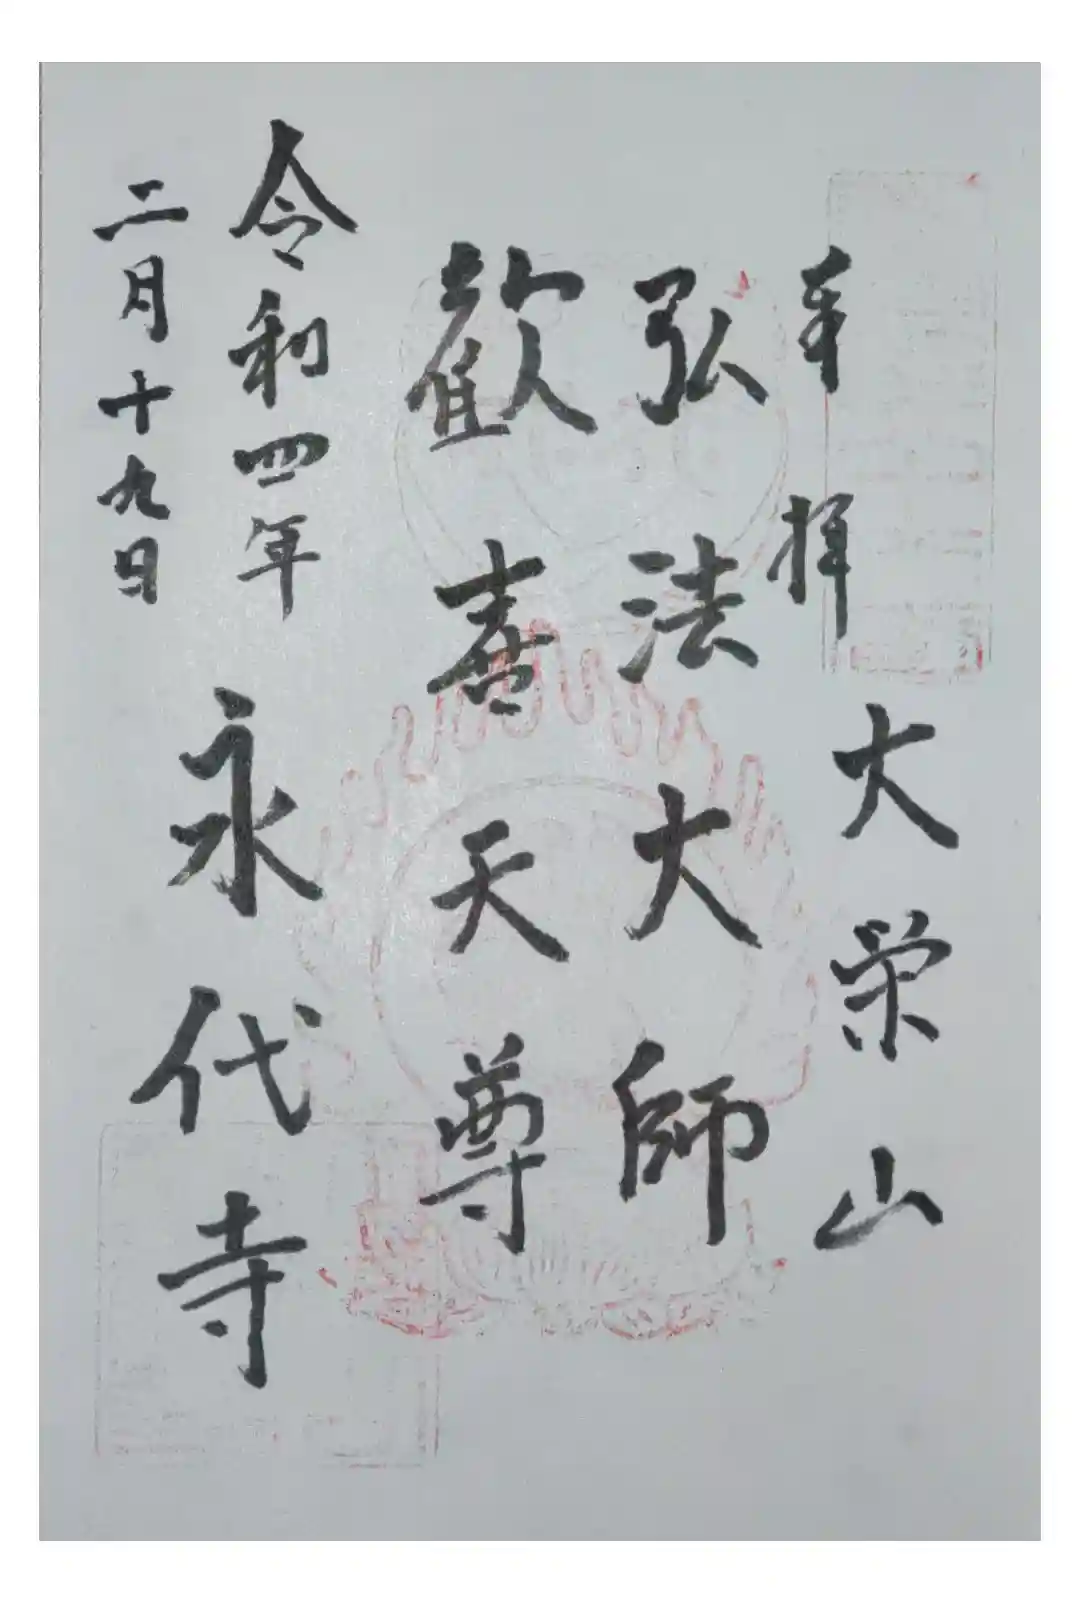 奉拝
大栄山
弘法大師
歓喜天尊
令和四年
二月十九日
永代寺